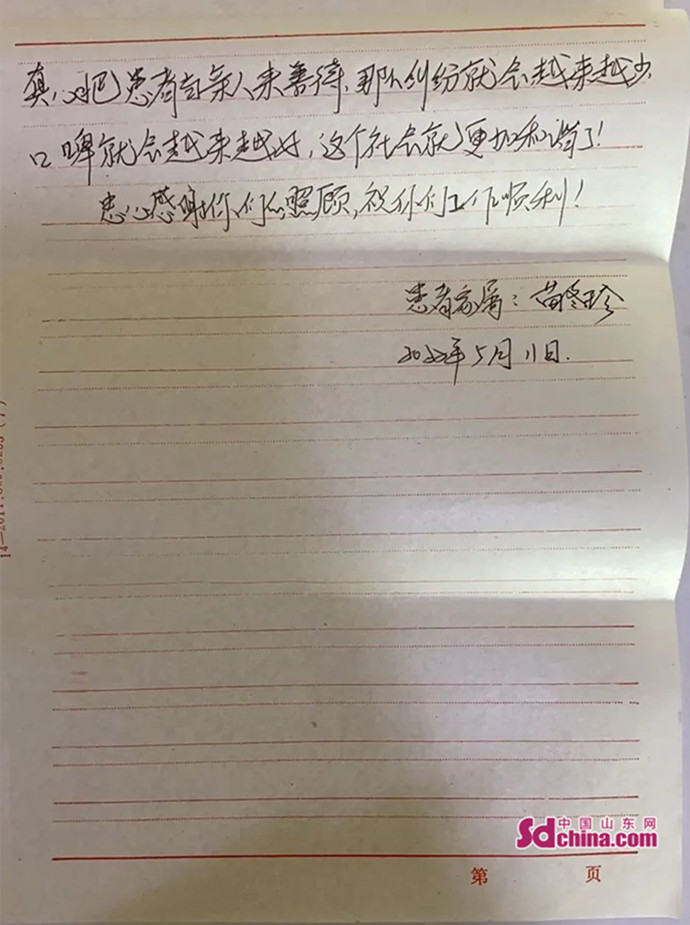 真心把患者当亲人来善待,那么纠纷就会越来越少,
口碑就会越来越好,这个社会就更加和谐了!
忠心感谢你们的照顾,祝你们工作顺利!
患者家属:苗冬珍
2022年5月11日.
中国山东网
Sdchina.com
第 页